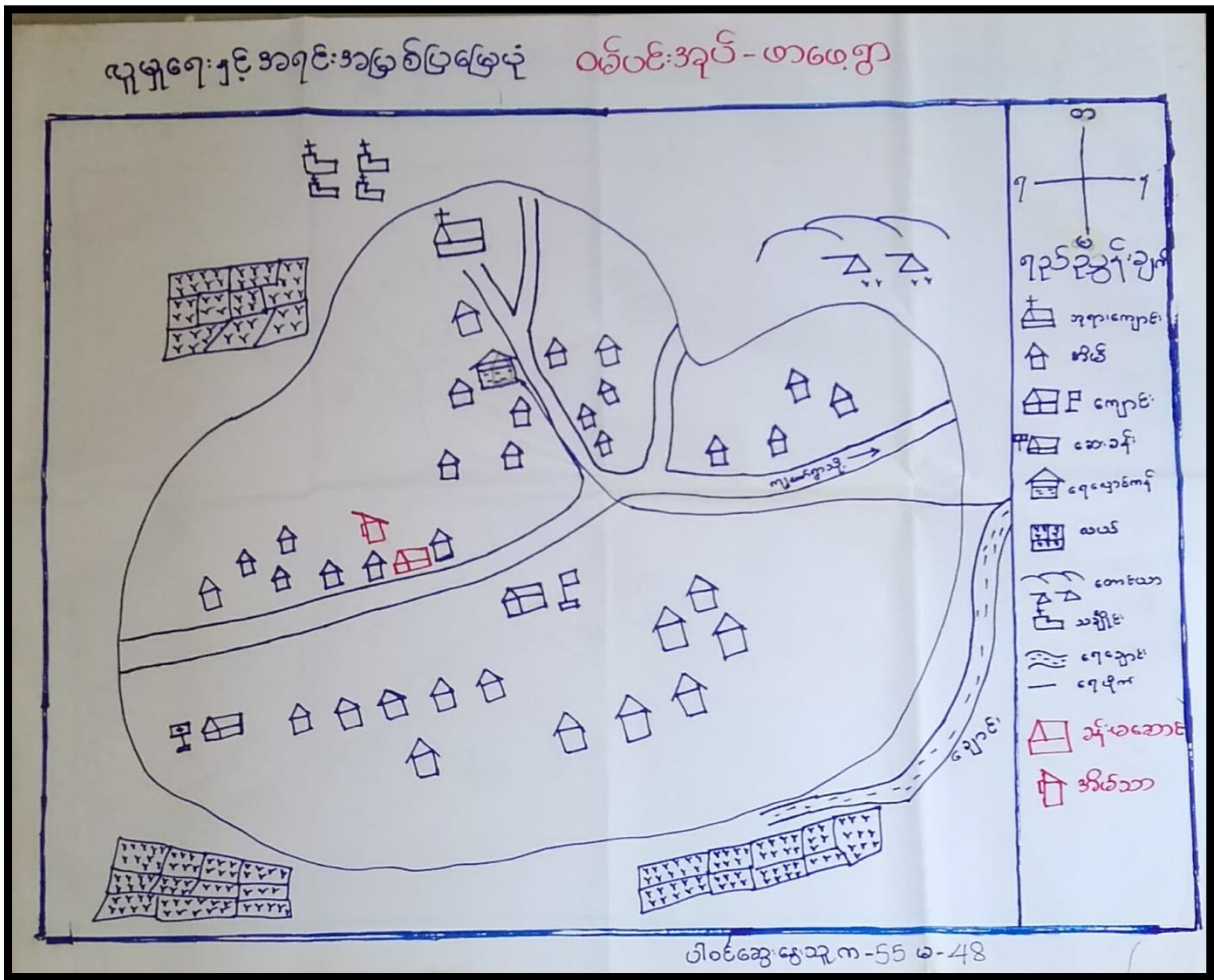 လူမှုရေးနှင့်အရင်းအမြစ်ပြမြေပုံ ဝမ်ပင်းအုပ်-ဖာဖေ့ရွာ
တ
ရ
မ
ရည်ညွှန်းချက်
ဘုရားကျောင်း
အိမ်
ကျောင်း
ဆေးခန်း
ရေလှောင်ကန်
လယ်
တောင်ယာ
သချိုင်း
ရေချောင်း
ရေပိုက်
ခန်းမဆောင်
အိမ်သာ
ချောင်း
ပါဝင်ဆွေးနွေးသူ က-55 မ-48